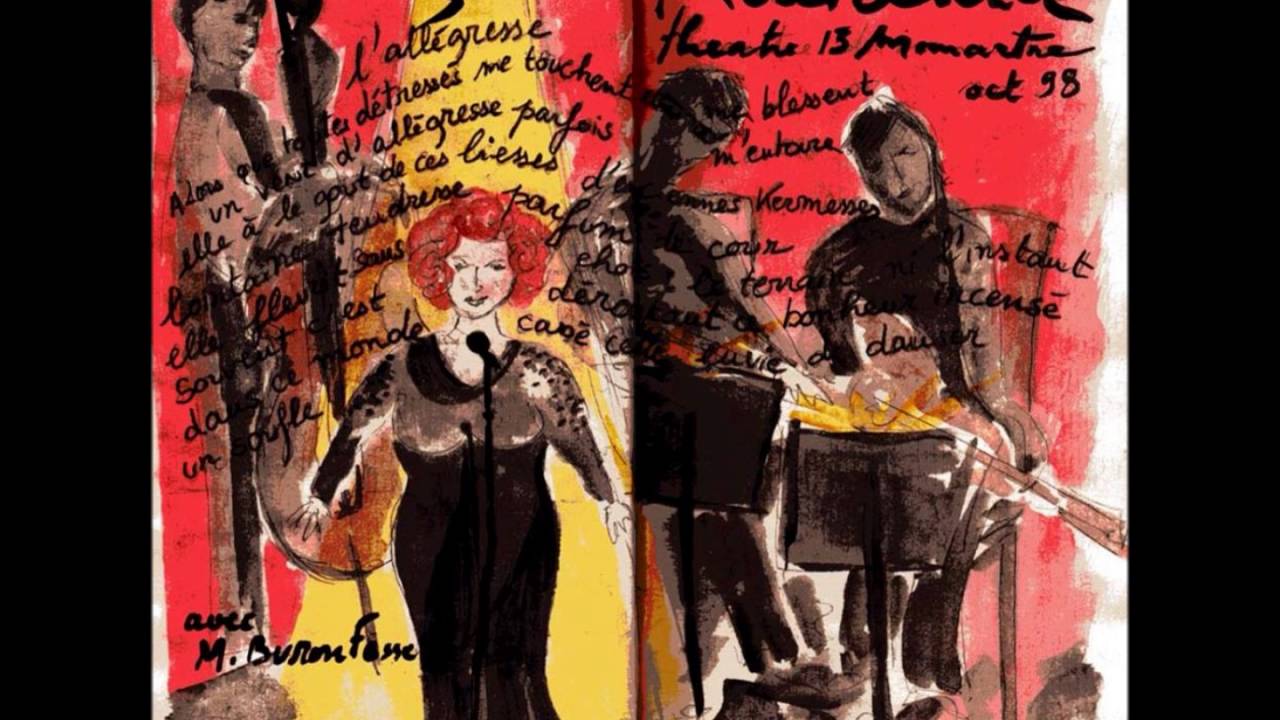 theatre 13 Momartre
oct 98
l'allégresse
Alors que toutes détresses me touchent me blessent
un vent d'allégresse parfois m'entoure
elle à le goût de ces liesses d'anciennes Kermesses
lointaine tendresse parfum de cour
elle fleurit sans choisir le terrain ni l'instant
souvent c'est déroutant ce bonheur incensé
dans ce monde casé cette envie de danser
un souffle
avec
M. Buronfosse